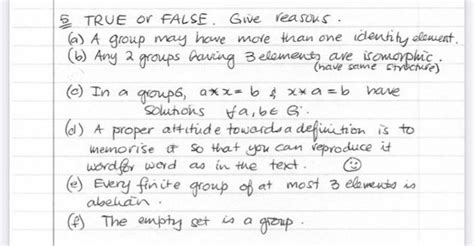 5 TRUE or FALSE. Give reasons.
(a) A group may have more than one identity element.
(b) Any 2 groups having 3 elements are isomorphic.
(have same structure)
(c) In a group G, a*x = b & x*a = b have
solutions ∀ a, b ∈ G.
(d) A proper attitude towards a definition is to
memorise it so that you can reproduce it
word for word as in the text. ☺
(e) Every finite group of at most 3 elements is
abelian.
(f) The empty set is a group.